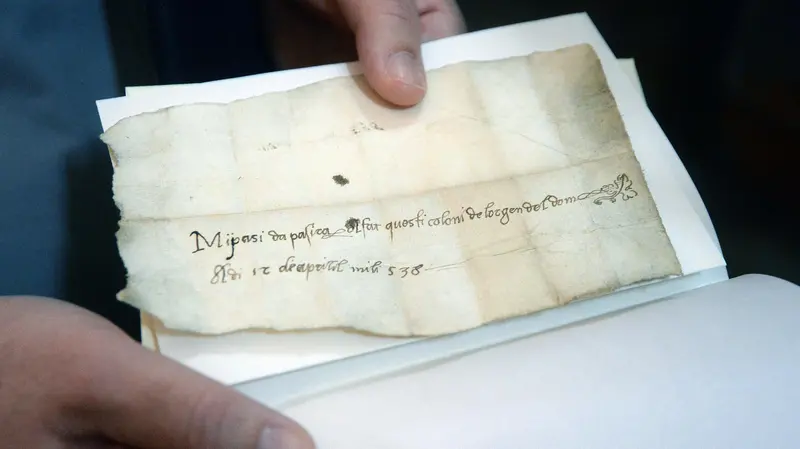 Mi pasi da pasira al far questi coloni de lorgen del dom
Al di 12 de april mili 538